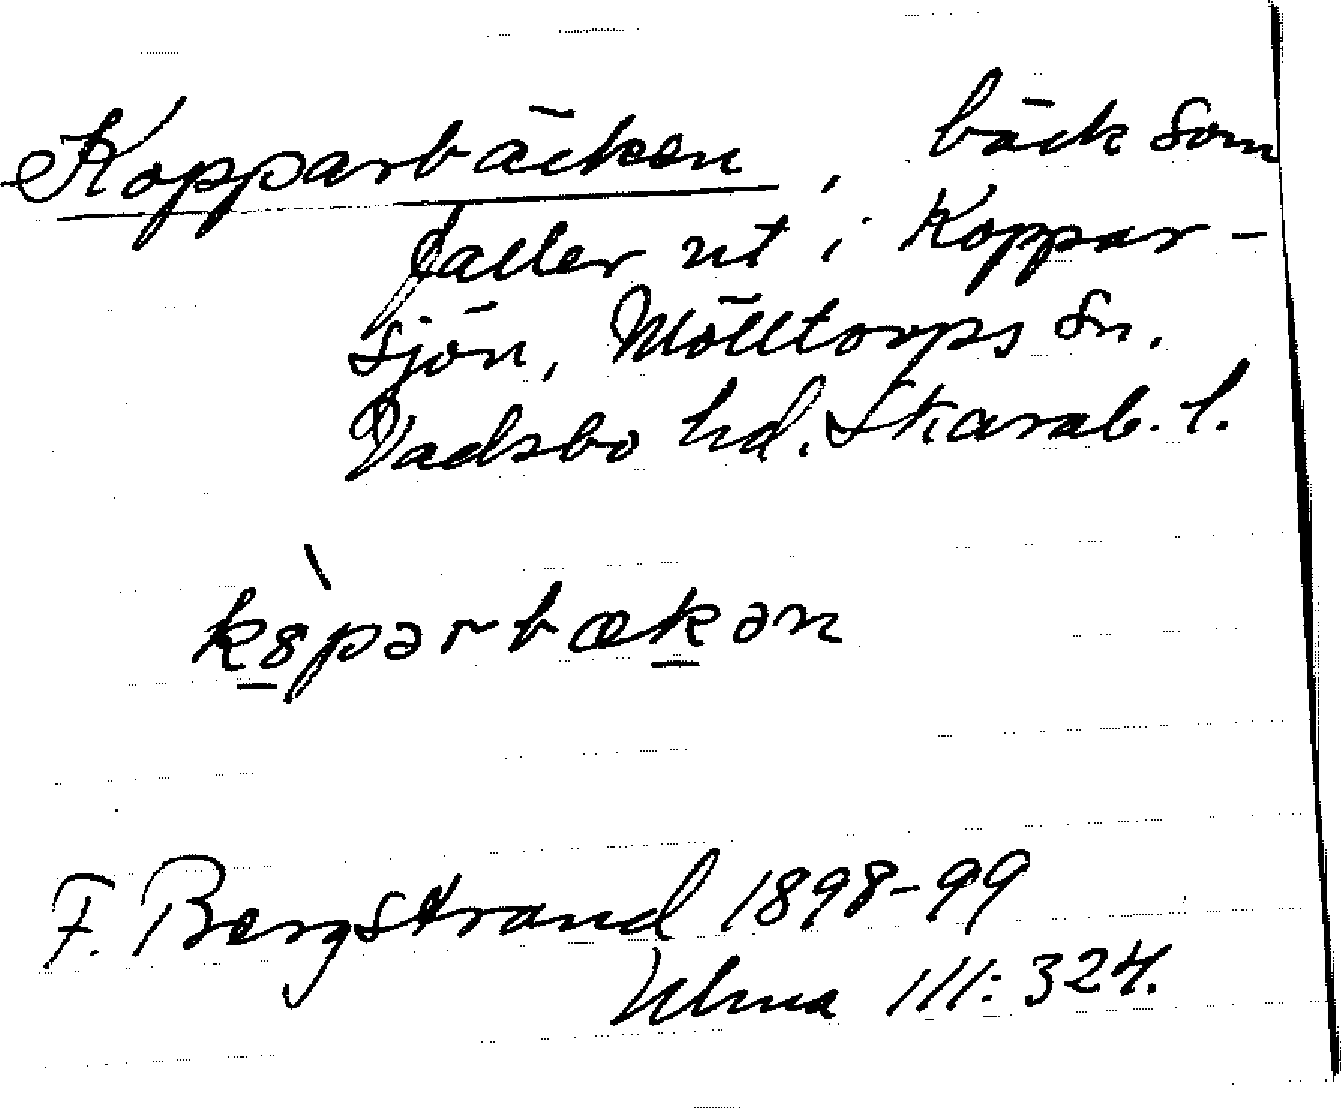 Kopparbäcken, bäck som
faller ut i Koppar-
sjön, Mölltorps sn.
Vadsbo hd. Skarab. l.
kòpərbækən
F. Bergstrand 1898-99
Ulma 111:324.